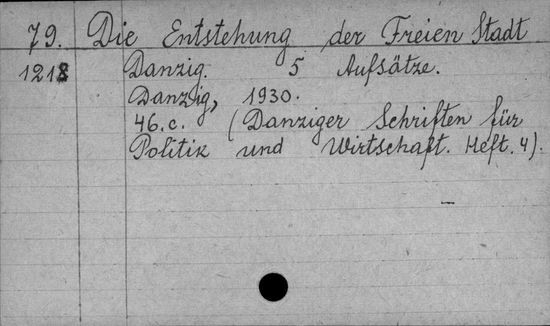 79. Die Entstehung der Freien Stadt
1218 Danzig. 5 Aufsätze.
Danzig, 1930.
46.c. (Danziger Schriften für
Politik und Wirtschaft. Heft. 4).